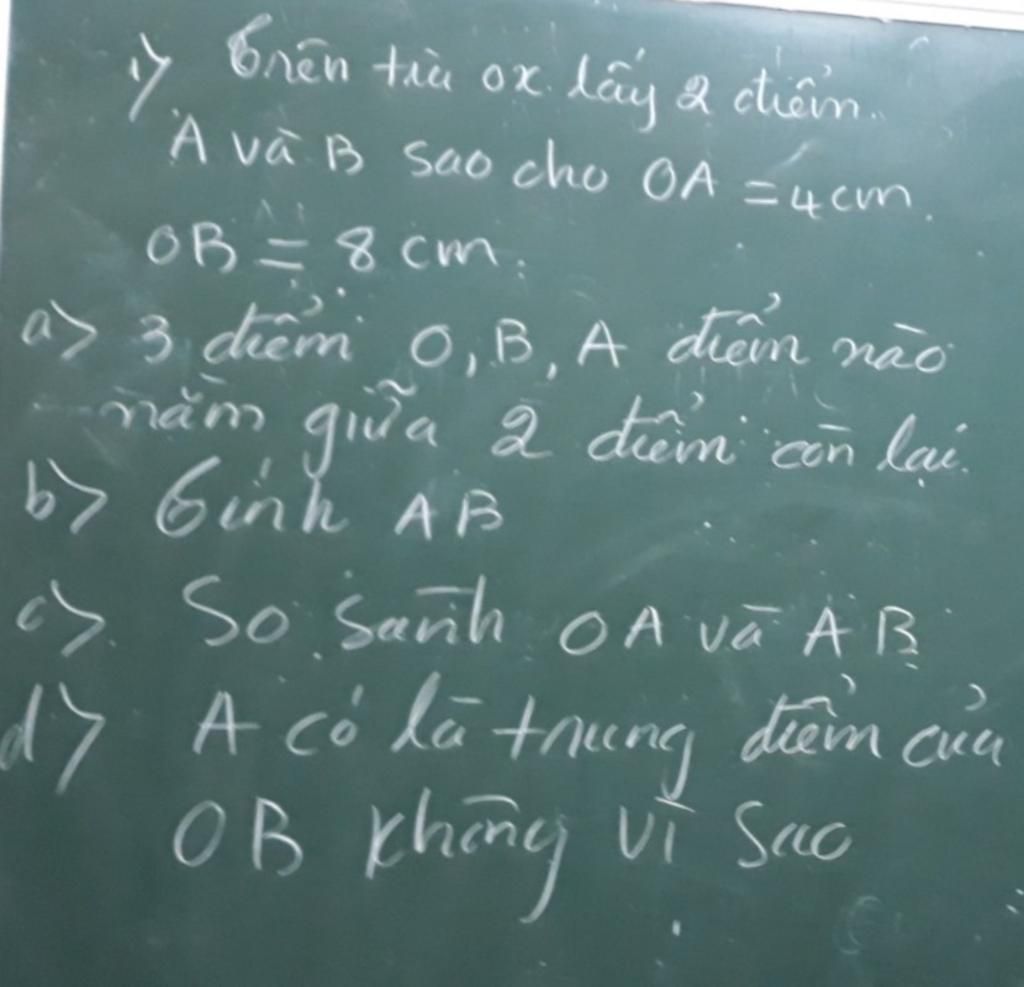 1> Trên tia ox lấy 2 điểm.
A và B sao cho OA = 4 cm.
OB = 8 cm.
a> 3 điểm O, B, A điểm nào
nằm giữa 2 điểm còn lại.
b> Tính AB
c> So sánh OA và AB
d> A có là trung điểm của
OB không vì sao